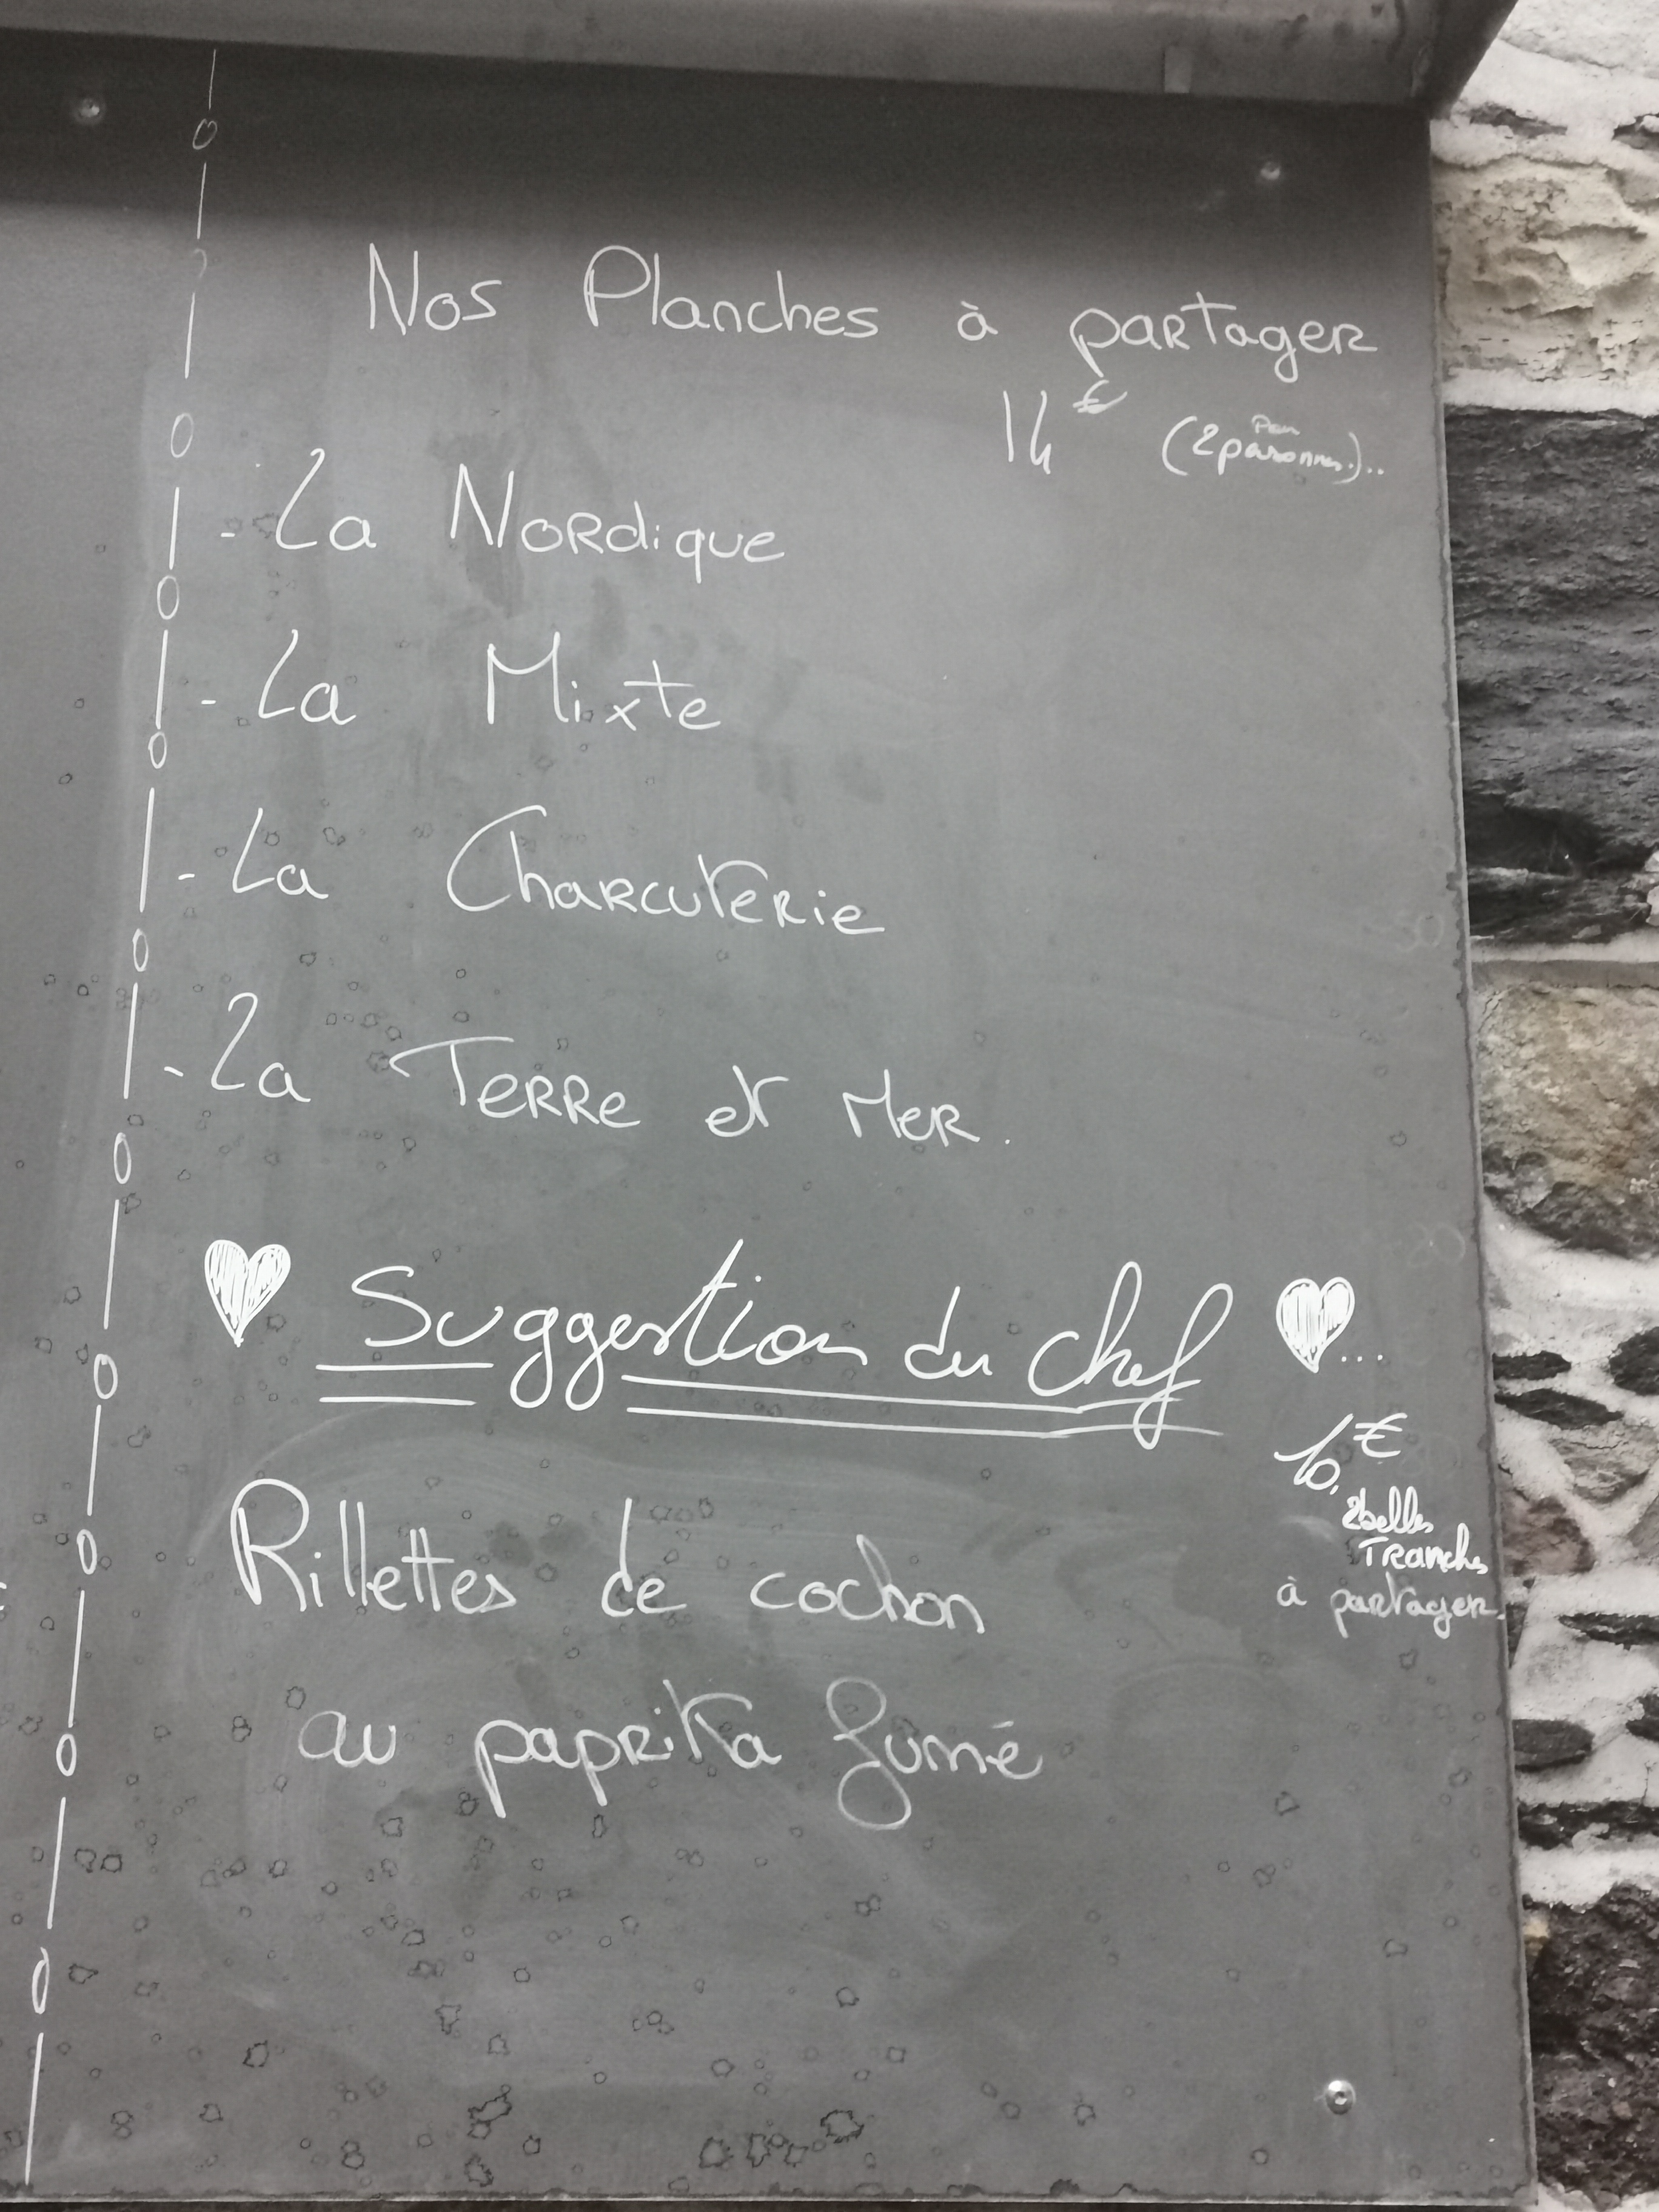 Nos Planches à partager
14€ (2 personnes)..
- La Nordique
- La Mixte
- La Charcuterie
- La Terre et Mer.
Suggestion du chef ...
10,€
2 belles
Tranches
à partager.
Rillettes de cochon
au paprika fumé